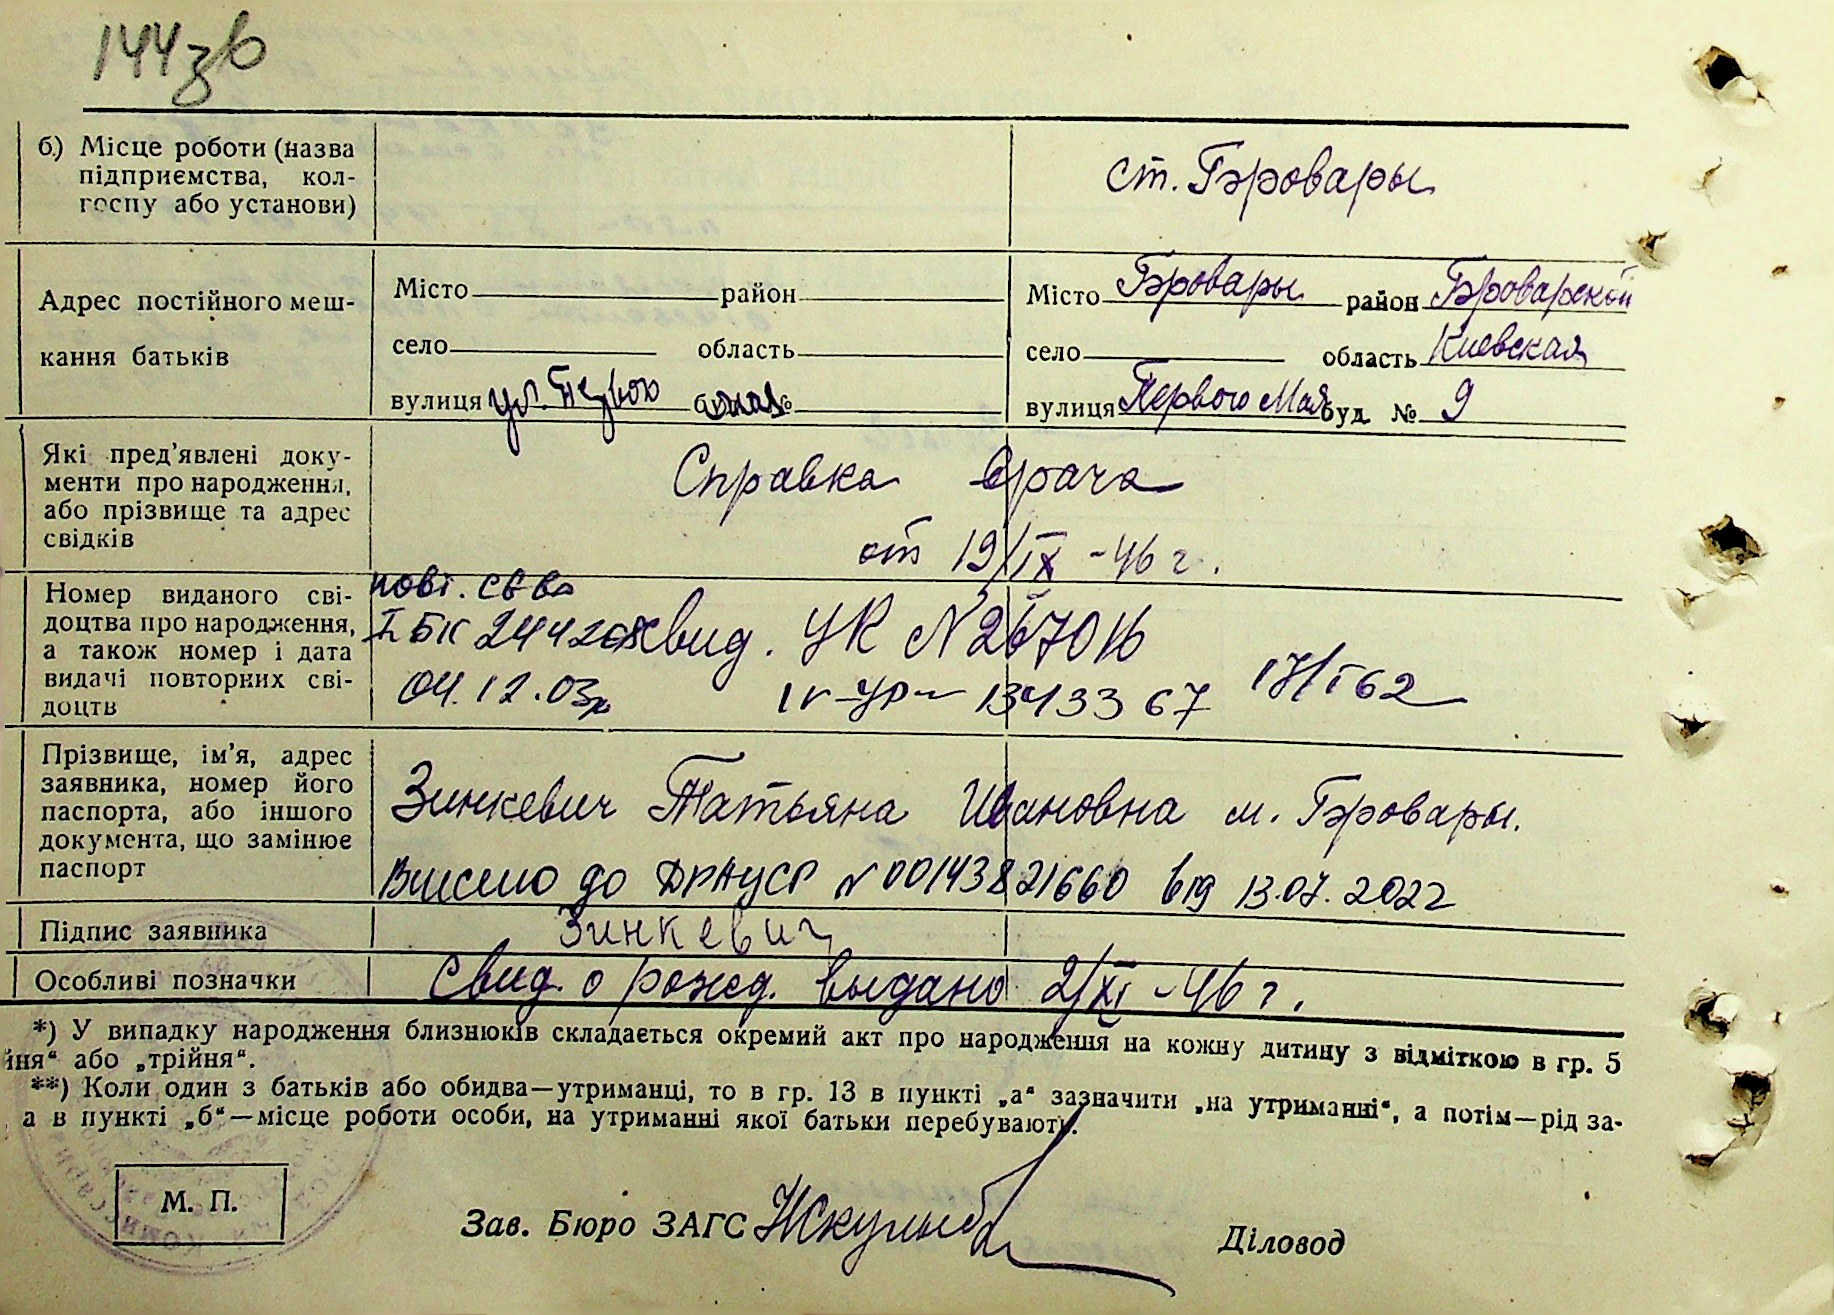 144зв
б.) Місце роботи (назва
підприємства, кол-
госпу або установи)
ст. Бровары
Адрес постійного меш-
кання батьків
Місто район
село область
вулиця ул. Первого мая №
Місто Бровары район Броварской
село область Киевская
вулиця Первого Мая буд № 9
Які пред'явлені доку-
менти про народження,
або прізвище та адрес
свідків
Справка врача
от 19/IX-46 г.
Номер виданого сві-
доцтва про народження,
а також номер і дата
видачі повторних сві-
доцтв
повт. св-во
I БК 244268
04.12.03р
свид. УК N 267016
IV-УР 1343367 17/I 62
Прізвище, ім'я, адрес
заявника, номер його
паспорта, або іншого
документа, що замінює
паспорт
Зинкевич Татьяна Ивановна м. Бровары.
Внесено до ДРАЦСГ N 00143821660 від 13.07.2022
Підпис заявника
Зинкевич
Особливі позначки
Свид. о рожд. выдано 2/XI-46 г.
*) У випадку народження близнюків складається окремий акт про народження на кожну дитину з відміткою в гр. 5
йня" або „трійня".
**) Коли один з батьків або обидва—утриманці, то в гр. 13 в пункті „а" зазначити „на утриманні", а потім—рід за-
а в пункті „б"—місце роботи особи, на утриманні якої батьки перебувають.
М. П.
Зав. Бюро ЗАГС
Діловод